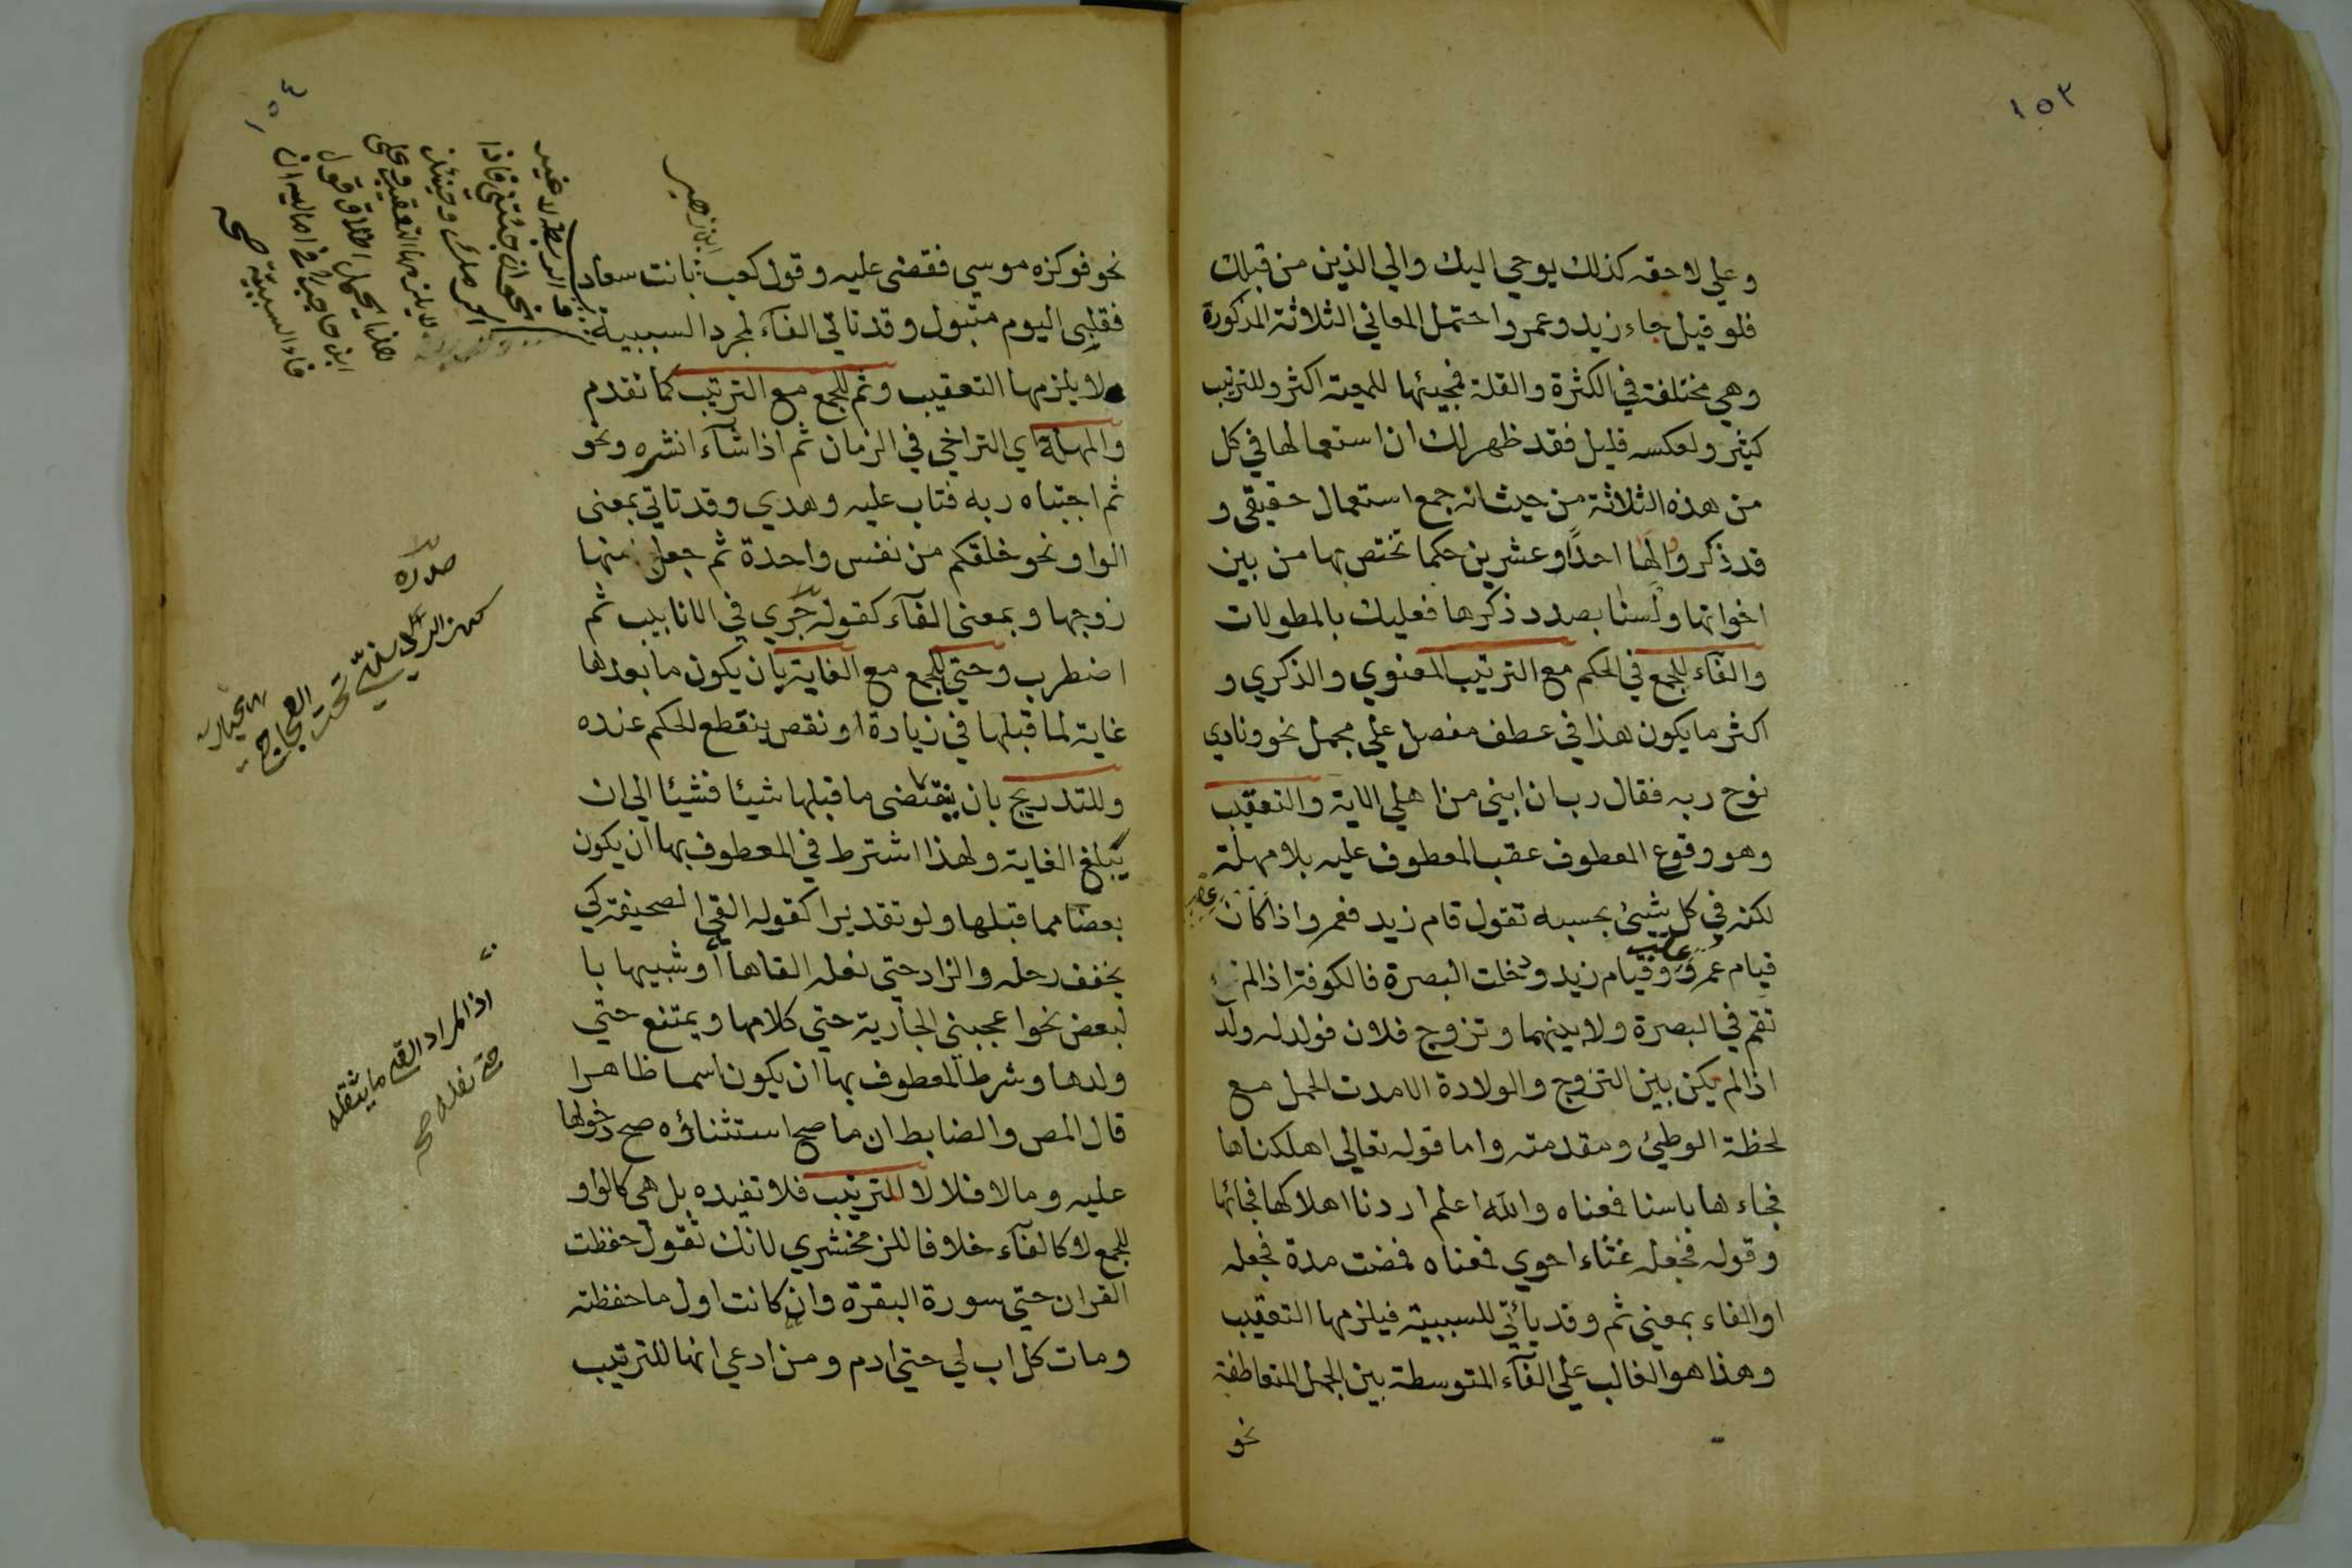 ١٥٣
وعلي لاحقه كذلك يوحي اليك والي الذين من قبلك
فلو قيل جاء زيد وعمرو احتمل المعاني الثلاثة المذكورة
وهي مختلفة في الكثرة والقلة فمجيئها للمعية اكثر وللترتيب
كثير ولعكسه قليل فقد ظهر لك ان استعمالها في كل
من هذه الثلاثة من حيث انه جمع استعمال حقيقي و
قد ذكروا لها احدًا وعشرين حكما تختص بها من بين
اخواتها ولسنا بصدد ذكرها فعليك بالمطولات
والفآء للجمع في الحكم مع الترتيب المعنوي والذكري و
اكثر ما يكون هذا في عطف مفصل علي مجمل نحو ونادي
نوح ربه فقال رب ان ابني من اهلي الاية والتعقيب
وهو وقوع المعطوف عقب المعطوف عليه بلا مهلة
لكنه في كل شيئ بحسبه تقول قام زيد فعمرو اذا كان
عقب
قيام عمرو وقيام زيد ودخلت البصرة فالكوفة اذا لم
تقم في البصرة ولا بينهما وتزوج فلان فولد له ولد
اذا لم يكن بين التزوج والولادة الا مدت الحمل مع
لحظة الوطيئ ومقدمته واما قوله تعالي اهلكناها
فجاءها باسنا فمعناه والله اعلم اردنا اهلاكها فجائها
وقوله فجعله غثاء احوي فمعناه فمضت مدة فجعله
اوالفاء بمعني ثم وقد يأتي للسببية فيلزمها التعقيب
وهذا هو الغالب علي الفآء المتوسطة بين الجمل المتعاطفة
نحو
١٥٤
ابن زهير
نحو فوكزه موسي فقضى عليه وقول كعب بانت سعاد
فقلبى اليوم متبول وقد تاتي الفآء لمجرد السببية
ولا يلزمها التعقيب وثم للجمع مع الترتيب كما تقدم
والمهلة اي التراخي في الزمان ثم اذا شآء انشره ونحو
ثم اجتباه ربه فتاب عليه وهدي وقد تاتي بمعنى
الواو نحو خلقكم من نفس واحدة ثم جعل منها
زوجها وبمعنى الفآء كقوله جري في الانابيب ثم
اضطرب وحتي للجمع مع الغاية بان يكون ما بعدها
غاية لما قبلها في زيادة او نقص ينقطع الحكم عنده
وللتدريج بان ينقضى ما قبلها شيئا فشيئا الي ان
يبلغ الغاية ولهذا اشترط في المعطوف بها ان يكون
بعضا مما قبلها ولو تقديرا كقوله القي الصحيفة كي
يخفف رحله والزاد حتي نعله القاها او شبيها با
لبعض نحو اعجبني الجارية حتي كلامها ويمتنع حتي
ولدها وشرط المعطوف بها ان يكون اسما ظاهرا
قال المص والضابط ان ما صح استثناؤه صح دخولها
عليه وما لا فلا لا للترتيب فلا تفيده بل هي كالواو
للجمع لا كالفآء خلافا للزمخشري لانك تقول حفظت
القران حتي سورة البقرة وان كانت اول ما حفظته
ومات كل اب لي حتي ادم ومن ادعي انها للترتيب
نحو ان جئتني فاذا
فلا يلزمها التعقيب وعلى
هذا يحمل اطلاق قول
ابن حاجب في اماليه ان
فاء السببية صح
صدره
كهز الرديني تحت العجاج
اذ المراد القي ما يثقله
حتي نعله صح